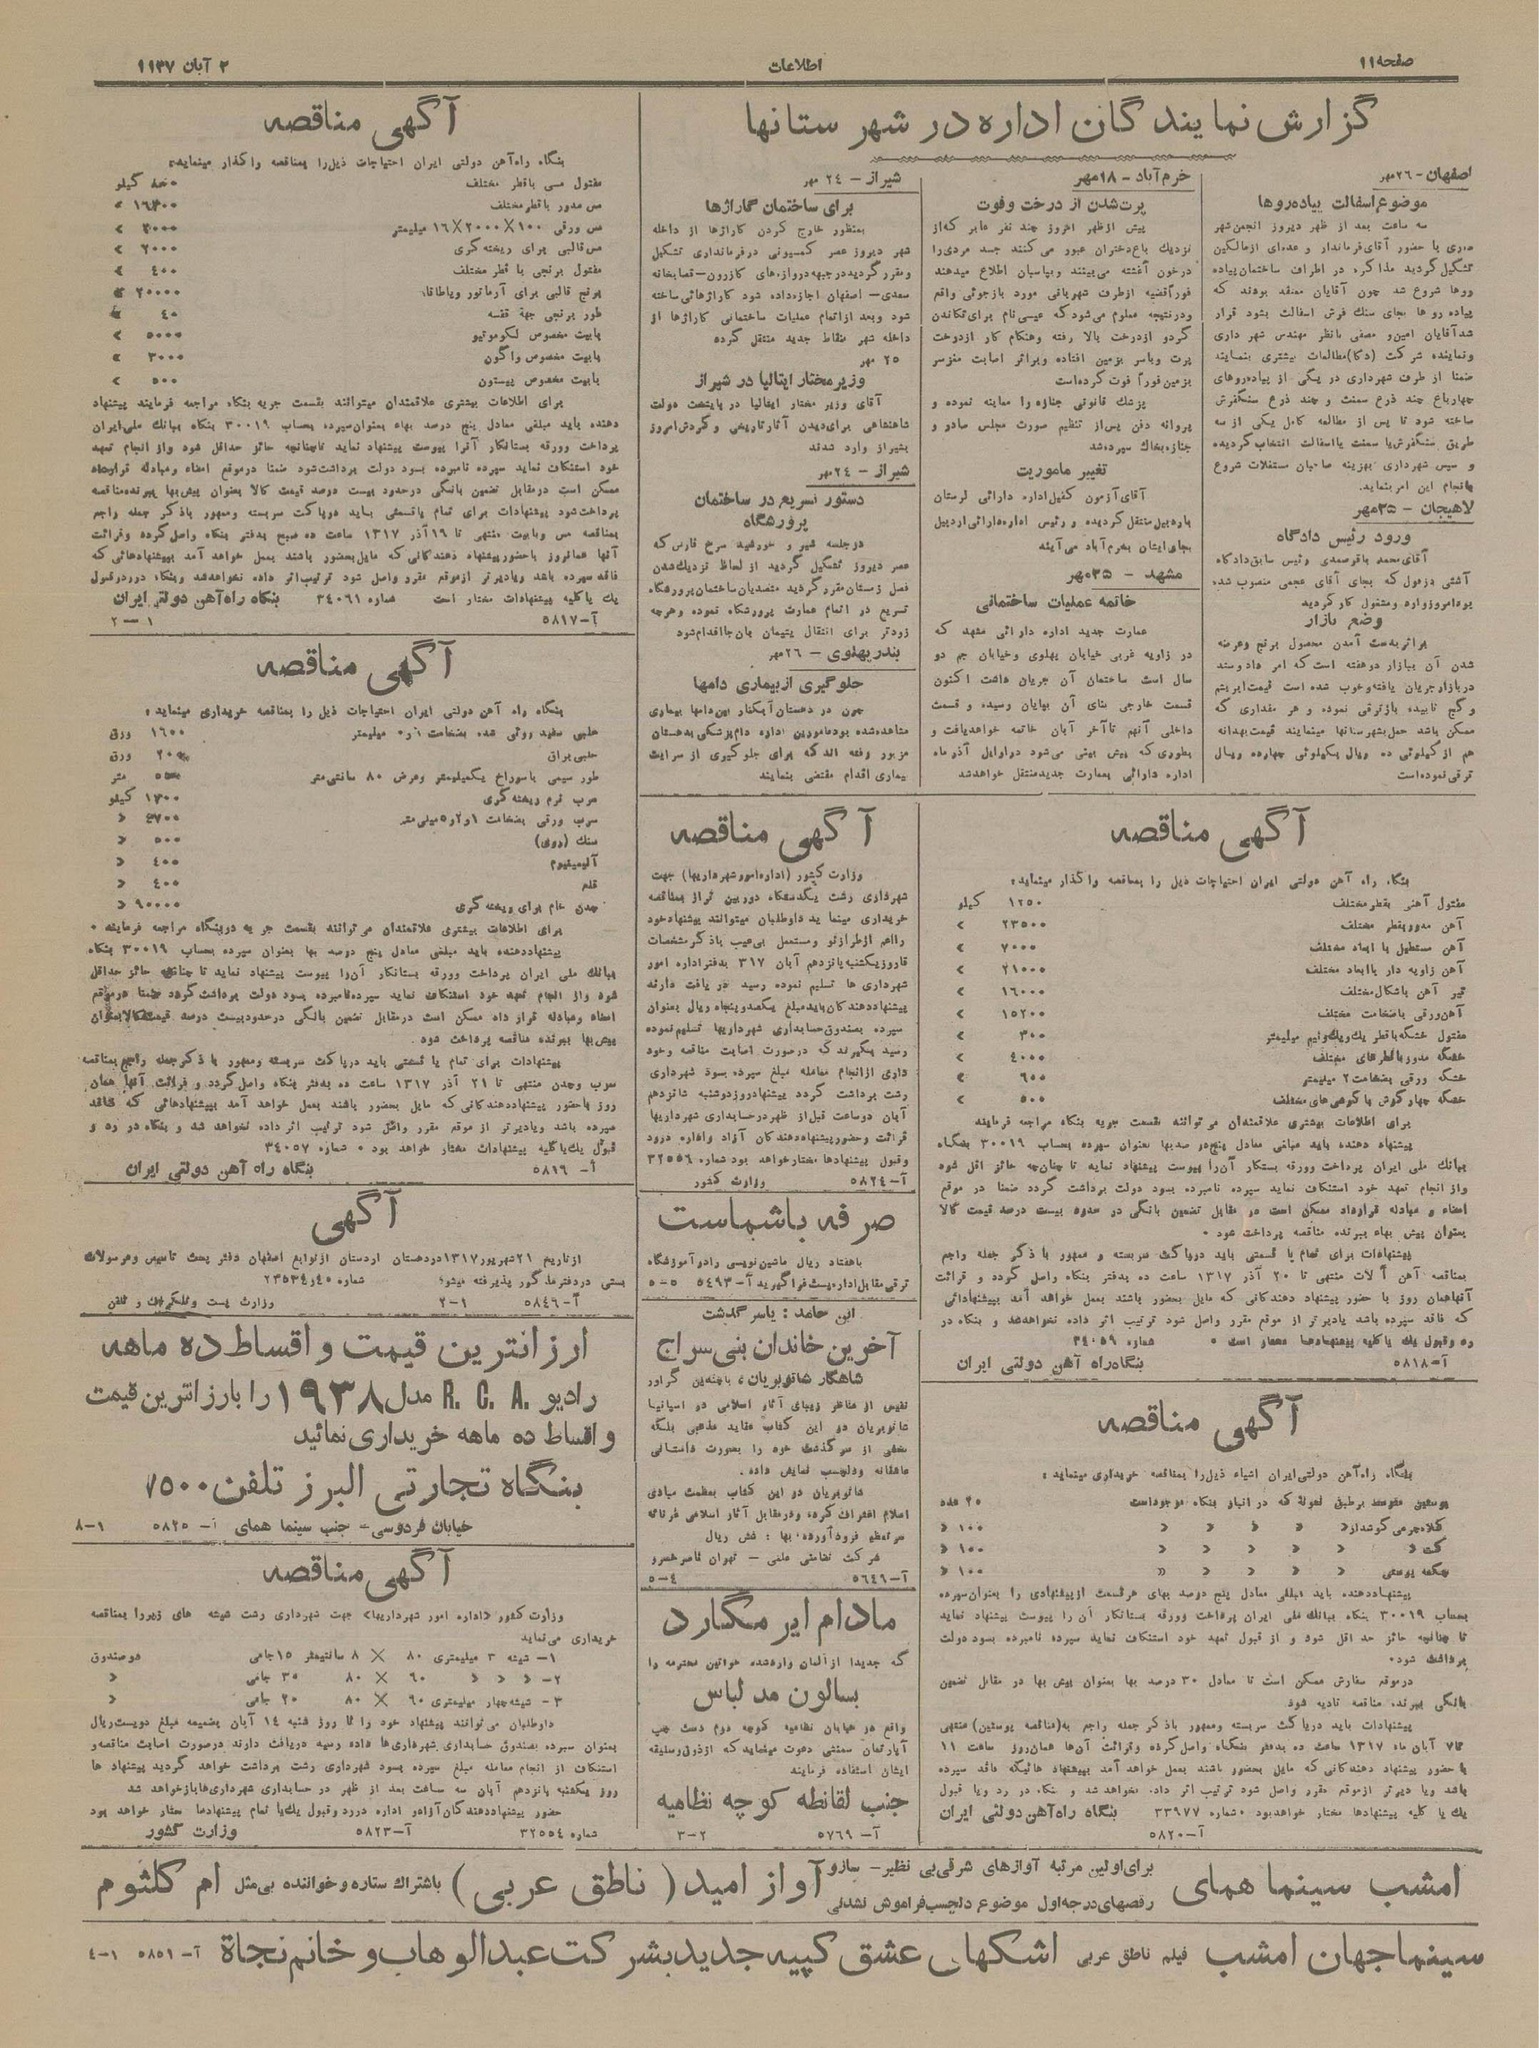 صفحه ۱۱
اطلاعات
۲ آبان ۱۳۱۷
گزارش نمایندگان اداره در شهرستانها
اصفهان - ۲۶ مهر
موضوع اسفالت پیاده‌روها
سه ساعت بعد از ظهر دیروز انجمن شهر
تشکیل گردید مذاکره در اطراف ساختمان پیاده
روها شروع شد چون آقایان معتقد بودند که
پیاده روها بجای سنك فرش اسفالت بشود قرار
شد آقایان امین و مصفی با نظر مهندس شهرداری
و نماینده شرکت (دکا) مطالعات بیشتری بنمایند
ضمنا از طرف شهرداری در یکی از پیاده‌روهای
چهارباغ چند ذرع سمنت و چند ذرع سنگفرش
ساخته شود تا پس از مطالعه کامل یکی از سه
طریق سنگفرش یا سمنت یا اسفالت انتخاب گردیده
و سپس شهرداری بهزینه صاحبان مستغلات شروع
بانجام این امر بنماید.
لاهیجان - ۲۵ مهر
ورود رئیس دادگاه
آقای محمد باقر صمدی رئیس سابق دادگاه
آشتی دزفول که بجای آقای عجمی منصوب شده
بود امروز وارد و مشغول کار گردید
وضع بازار
براثر بدست آمدن محصول برنج و عرضه
شدن آن ببازار دو هفته است که امر داد و ستد
در بازار جریان یافته و خوب شده است قیمت ابریشم
و کج تابیده باز ترقی نموده و هر مقداری که
ممکن باشد حمل بشهرستانها مینمایند قیمت بهدانه
هم از کیلوئی ده ریال بکیلوئی چهارده ریال
ترقی نموده است
خرم‌آباد - ۱۸ مهر
پرت شدن از درخت و فوت
پیش از ظهر امروز چند نفر عابر که از
نزدیك باغ دختران عبور می کنند جسد مردی را
در خون آغشته می بینند و بپاسبان اطلاع میدهند
فوراً قضیه از طرف شهربانی مورد بازجوئی واقع
و در نتیجه معلوم می شود که عیسی نام برای تکاندن
گردو از درخت بالا رفته و هنگام کار از درخت
پرت و با سر بزمین افتاده و براثر اصابت مغز سر
بزمین فوراً فوت کرده است
پزشك قانونی جنازه را معاینه نموده و
پروانه دفن پس از تنظیم صورت مجلس صادر و
جنازه بخاك سپرده شد
تغییر ماموریت
آقای آزمون کفیل اداره دارائی لرستان
باردبیل منتقل گردیده و رئیس اداره دارائی اردبیل
بجای ایشان بخرم آباد می آیند
مشهد - ۲۵ مهر
خاتمه عملیات ساختمانی
عمارت جدید اداره دارائی مشهد که
در زاویه غربی خیابان پهلوی و خیابان جم دو
سال است ساختمان آن جریان داشت اکنون
قسمت خارجی بنای آن بپایان رسیده و قسمت
داخلی آنهم تا آخر آبان خاتمه خواهد یافت و
بطوری که پیش بینی می شود در اوایل آذر ماه
اداره دارائی بعمارت جدید منتقل خواهد شد
شیراز - ۲۴ مهر
برای ساختمان گاراژها
بمنظور خارج کردن گاراژها از داخله
شهر دیروز عصر کمسیونی در فرمانداری تشکیل
و مقرر گردید در جبهه دروازه های کازرون - قصابخانه
سعدی - اصفهان اجازه داده شود گاراژهائی ساخته
شود و بعد از اتمام عملیات ساختمانی گاراژها از
داخله شهر بنقاط جدید منتقل گردد
۲۵ مهر
وزیر مختار ایتالیا در شیراز
آقای وزیر مختار ایتالیا در پایتخت دولت
شاهنشاهی برای دیدن آثار تاریخی و گردش امروز
بشیراز وارد شدند
شیراز - ۲۴ مهر
دستور تسریع در ساختمان
پرورشگاه
در جلسه شیر و خورشید سرخ فارس که
عصر دیروز تشکیل گردید از لحاظ نزدیك شدن
فصل زمستان مقرر گردید متصدیان ساختمان پرورشگاه
تسریع در اتمام عمارت پرورشگاه نموده و هرچه
زودتر برای انتقال یتیمان بآن جا اقدام شود
بندر پهلوی - ۲۶ مهر
جلوگیری از بیماری دامها
چون در دهستان آبکنار بین دامها بیماری
مشاهده شده بود مامورین اداره دام پزشکی بدهستان
مزبور رفته اند که برای جلوگیری از سرایت
بیماری اقدام مقتضی بنمایند
آگهی مناقصه
بنگاه راه‌آهن دولتی ایران احتیاجات ذیل را بمناقصه واگذار مینماید:
مفتول مسی باقطر مختلف ۸۰۰ کیلو
مس مدور باقطر مختلف
مس ورقی ۱۰۰ × ۲۰۰۰ × ۱۶ میلیمتر
مس قالبی برای ریخته گری ۲۰۰۰ »
مفتول برنجی با قطر مختلف ۴۰۰ »
برنج قالبی برای آرماتور و یاطاقان ۲۰۰۰۰ »
طور برنجی جهة قفسه ۴۰ »
بابیت مخصوص لکوموتیو ۵۰۰۰ »
بابیت مخصوص واگون ۳۰۰۰ »
بابیت مخصوص پیستون ۵۰۰ »
برای اطلاعات بیشتری علاقمندان میتوانند بقسمت جریه بنگاه مراجعه فرمایند پیشنهاد
دهنده باید مبلغی معادل پنج درصد بهاء بعنوان سپرده بحساب ۳۰۰۱۹ بنگاه ببانك ملی ایران
پرداخت و ورقه بستانکار آنرا پیوست پیشنهاد نماید تا چنانچه حائز حداقل شود و از انجام تعهد
خود استنکاف نماید سپرده نامبرده بسود دولت برداشت شود ضمنا در موقع امضاء و مبادله قرارداد
ممکن است در مقابل تضمین بانگی در حدود بیست درصد قیمت کالا بعنوان پیش بها ببرنده مناقصه
پرداخت شود پیشنهادات برای تمام یا قسمتی باید در پاکت سربسته و ممهور با ذکر جمله راجع
بمناقصه مس و بابیت منتهی تا ۱۹ آذر ۱۳۱۷ ساعت ده صبح بدفتر بنگاه واصل گردد و قرائت
آنها همانروز با حضور پیشنهاد دهندگانی که مایل بحضور باشند بعمل خواهد آمد به پیشنهادهائی که
فاقد سپرده باشد و یا دیرتر از موقع مقرر واصل شود ترتیب اثر داده نخواهد شد و بنگاه در رد و قبول
یك یا کلیه پیشنهادات مختار است شماره ۳۴۰۶۱ بنگاه راه آهن دولتی ایران
آ-۵۸۱۷ ۱-۲
آگهی مناقصه
بنگاه راه آهن دولتی ایران احتیاجات ذیل را بمناقصه خریداری مینماید:
حلبی سفید روئی شده بضخامت ۱ و ۰ میلیمتر ۱۶۰۰ ورق
حلبی براق ورق
طور سیمی با سوراخ یکمیلیمتر و عرض ۸۰ سانتی متر متر
سرب نرم ریخته گری کیلو
سرب ورقی بضخامت ۱ و ۲ و ۵ میلی متر
سنك (روی) ۵۰۰ »
آلیمینیوم ۴۰۰ »
قلع ۴۰۰ »
چدن خام برای ریخته گری ۹۰۰۰۰ »
برای اطلاعات بیشتری علاقمندان می توانند بقسمت جریه در بنگاه مراجعه فرمایند.
پیشنهاد دهنده باید مبلغی معادل پنج درصد بها بعنوان سپرده بحساب ۳۰۰۱۹ بنگاه
ببانك ملی ایران پرداخت و ورقه بستانکار آن را پیوست پیشنهاد نماید تا چنانچه حائز حداقل
شود و از انجام تعهد خود استنکاف نماید سپرده نامبرده بسود دولت برداشت گردد ضمنا در موقع
امضاء و مبادله قرار داد ممکن است در مقابل تضمین بانگی در حدود بیست درصد قیمت کالا بعنوان
پیش بها ببرنده مناقصه پرداخت شود.
پیشنهادات برای تمام یا قسمتی باید در پاکت سربسته و ممهور با ذکر جمله راجع بمناقصه
سرب و چدن منتهی تا ۲۱ آذر ۱۳۱۷ ساعت ده بدفتر بنگاه واصل گردد و قرائت آنها همان
روز با حضور پیشنهاد دهندگانی که مایل بحضور باشند بعمل خواهد آمد به پیشنهادهائی که فاقد
سپرده باشد و یا دیرتر از موقع مقرر واصل شود ترتیب اثر داده نخواهد شد و بنگاه در رد و
قبول یك یا کلیه پیشنهادات مختار خواهد بود. شماره ۳۴۰۵۷
آ-۵۸۱۹ بنگاه راه آهن دولتی ایران
آگهی
از تاریخ ۲۱ شهریور ۱۳۱۷ در دهستان اردستان از توابع اصفهان دفتر پست تاسیس و مرسولات
پستی در دفتر مذکور پذیرفته میشود شماره
آ-۵۸۴۶ ۱-۲ وزارت پست و تلگراف و تلفن
ارزانترین قیمت و اقساط ده ماهه
رادیو R. C. A. مدل ۱۹۳۸ را بارزانترین قیمت
و اقساط ده ماهه خریداری نمائید
بنگاه تجارتی البرز تلفن ۷۵۰۰
خیابان فردوسی - جنب سینما همای آ-۵۸۲۵ ۱-۸
آگهی مناقصه
وزارت کشور «اداره امور شهرداریها» جهت شهرداری رشت شیشه های زیر را بمناقصه
خریداری می نماید
۱- شیشه ۳ میلیمتری ۸۰ × ۸ سانتیمتر ۱۵ جامی دو صندوق
۲- » » » ۶۰ × ۸۰ ۳۵ جامی »
۳- شیشه چهار میلیمتری ۶۰ × ۸۰ ۲۰ جامی »
داوطلبان می توانند پیشنهاد خود را تا روز شنبه ۱۴ آبان بضمیمه مبلغ دویست ریال
بعنوان سپرده بصندوق حسابداری شهرداری‌ها داده رسید دریافت دارند در صورت اصابت مناقصه و
استنکاف از انجام معامله مبلغ سپرده بسود شهرداری رشت برداشت خواهد گردید پیشنهاد ها
روز یکشنبه پانزدهم آبان سه ساعت بعد از ظهر در حسابداری شهرداری‌ها باز خواهد شد
حضور پیشنهاد دهندگان آزاد و اداره در رد و قبول یك یا تمام پیشنهادها مختار خواهد بود
شماره ۳۲۵۵۴ آ-۵۸۲۳ وزارت کشور
آگهی مناقصه
وزارت کشور (اداره امور شهرداریها) جهت
شهرداری رشت یکدستگاه دوربین تراز بمناقصه
خریداری مینماید داوطلبان میتوانند پیشنهاد خود
را اعم از طراز نو و مستعمل بی عیب با ذکر مشخصات
تا روز یکشنبه پانزدهم آبان ۳۱۷ بدفتر اداره امور
شهرداری ها تسلیم نموده رسید دریافت دارند
پیشنهاد دهندگان باید مبلغ یکصد و پنجاه ریال بعنوان
سپرده بصندوق حسابداری شهرداریها تسلیم نموده
رسید بگیرند که در صورت اصابت مناقصه و خود
داری از انجام معامله مبلغ سپرده بسود شهرداری
رشت برداشت گردد پیشنهاد روز دوشنبه شانزدهم
آبان دو ساعت قبل از ظهر در حسابداری شهرداریها
قرائت و حضور پیشنهاد دهندگان آزاد و اداره در رد
و قبول پیشنهادها مختار خواهد بود شماره ۳۲۵۵۶
آ-۵۸۲۴ وزارت کشور
صرفه باشماست
باهفتاد ریال ماشین نویسی را در آموزشگاه
ترقی مقابل اداره پست فراگیرید آ-۵۴۹۳ ۵-۵
ابن حامد: یاسر گذشت
آخرین خاندان بنی سراج
شاهکار شاتوبریان، باچندین گراور
نفیس از مناظر زیبای آثار اسلامی در اسپانیا
شاتوبریان در این کتاب عقاید مذهبی بلکه
بخشی از سرگذشت خود را بصورت داستانی
عاشقانه و دلچسب نمایش داده.
شاتوبریان در این کتاب بعظمت مبادی
اسلام اعتراف کرده و در مقابل آثار اسلامی غرناطه
سر تعظیم فرود آورده. بها: شش ریال
شرکت تضامنی علمی - تهران ناصر خسرو
آ-۵۶۴۶ ۴-۵
مادام ایرمگارد
که جدیدا از آلمان وارد شده خواتین محترمه را
بسالون مد لباس
واقع در خیابان نظامیه کوچه دوم دست چپ
آپارتمان سمنتی دعوت مینماید که از ذوق و سلیقه
ایشان استفاده فرمایند
جنب لقانطه کوچه نظامیه
آ-۵۷۶۹ ۲-۳
آگهی مناقصه
بنگاه راه آهن دولتی ایران احتیاجات ذیل را بمناقصه واگذار مینماید:
مفتول آهنی بقطر مختلف ۱۲۵۰ کیلو
آهن مدور بقطر مختلف ۲۳۵۰۰ »
آهن مستطیل با ابعاد مختلف ۷۰۰۰ »
آهن زاویه دار با ابعاد مختلف ۲۱۰۰۰ »
تیر آهن باشکال مختلف ۱۶۰۰۰ »
آهن ورقی باضخامت مختلف ۱۵۲۰۰ »
مفتول خشکه باقطر یك و یك و نیم میلیمتر ۳۰۰ »
خشکه مدور باقطرهای مختلف ۴۰۰۰ »
خشکه ورقی بضخامت ۲ میلیمتر ۶۰۰ »
خشکه چهار گوش یا گوشی های مختلف ۵۰۰ »
برای اطلاعات بیشتری علاقمندان می توانند بقسمت جریه بنگاه مراجعه فرمایند
پیشنهاد دهنده باید مبلغی معادل پنج در صد بها بعنوان سپرده بحساب ۳۰۰۱۹ بنگاه
ببانك ملی ایران پرداخت و ورقه بستانکار آن را پیوست پیشنهاد نماید تا چنانچه حائز اقل شود
و از انجام تعهد خود استنکاف نماید سپرده نامبرده بسود دولت برداشت گردد ضمنا در موقع
امضاء و مبادله قرارداد ممکن است در مقابل تضمین بانگی در حدود بیست درصد قیمت کالا
بعنوان پیش بهاء ببرنده مناقصه پرداخت شود.
پیشنهادات برای تمام یا قسمتی باید در پاکت سربسته و ممهور با ذکر جمله راجع
بمناقصه آهن آلات منتهی تا ۲۰ آذر ۱۳۱۷ ساعت ده بدفتر بنگاه واصل گردد و قرائت
آنها همان روز با حضور پیشنهاد دهندگانی که مایل بحضور باشند بعمل خواهد آمد به پیشنهادهائی
که فاقد سپرده باشد یا دیرتر از موقع مقرر واصل شود ترتیب اثر داده نخواهد شد و بنگاه در
رد و قبول یك یا کلیه پیشنهادها مختار است. شماره ۳۴۰۵۹
آ-۵۸۱۸ بنگاه راه آهن دولتی ایران
آگهی مناقصه
بنگاه راه‌آهن دولتی ایران اشیاء ذیل را بمناقصه خریداری مینماید:
پوستین متوسط برطبق نمونه که در انبار بنگاه موجود است ۲۵ عدد
کلاه چرمی گوشدار » » » » » ۱۰۰ »
کت » » » » » ۱۰۰ »
چکمه پوستی » » » » ۱۰۰ »
پیشنهاد دهنده باید مبلغی معادل پنج درصد بهای هر قسمت از پیشنهادی را بعنوان سپرده
بحساب ۳۰۰۱۹ بنگاه ببانك ملی ایران پرداخت و ورقه بستانکار آن را پیوست پیشنهاد نماید
تا چنانچه حائز حد اقل شود و از قبول تعهد خود استنکاف نماید سپرده نامبرده بسود دولت
برداشت شود.
در موقع سفارش ممکن است تا معادل ۳۰ درصد بها بعنوان پیش بها در مقابل تضمین
بانگی ببرنده مناقصه تادیه شود
پیشنهادات باید در پاکت سربسته و ممهور با ذکر جمله راجع به (مناقصه پوستین) منتهی
تا ۷ آبان ماه ۱۳۱۷ ساعت ده بدفتر بنگاه واصل گردد و قرائت آن‌ها همان روز ساعت ۱۱
با حضور پیشنهاد دهندگانی که مایل بحضور باشند بعمل خواهد آمد بپیشنهاد هائیکه فاقد سپرده
باشد و یا دیرتر از موقع مقرر واصل شود ترتیب اثر داده نخواهد شد و بنگاه در رد و یا قبول
یك یا کلیه پیشنهادها مختار خواهد بود. شماره ۳۳۹۷۷ بنگاه راه آهن دولتی ایران
آ-۵۸۲۰
امشب سینما همای برای اولین مرتبه آوازهای شرقی بی نظیر - سازو
رقصهای درجه اول موضوع دلچسب فراموش نشدنی
آواز امید (ناطق عربی) باشتراك ستاره و خواننده بی مثل ام کلثوم
سینما جهان امشب فیلم ناطق عربی اشکهای عشق کپیه جدید بشرکت عبدالوهاب و خانم نجاة آ-۵۸۵۱ ۱-۴